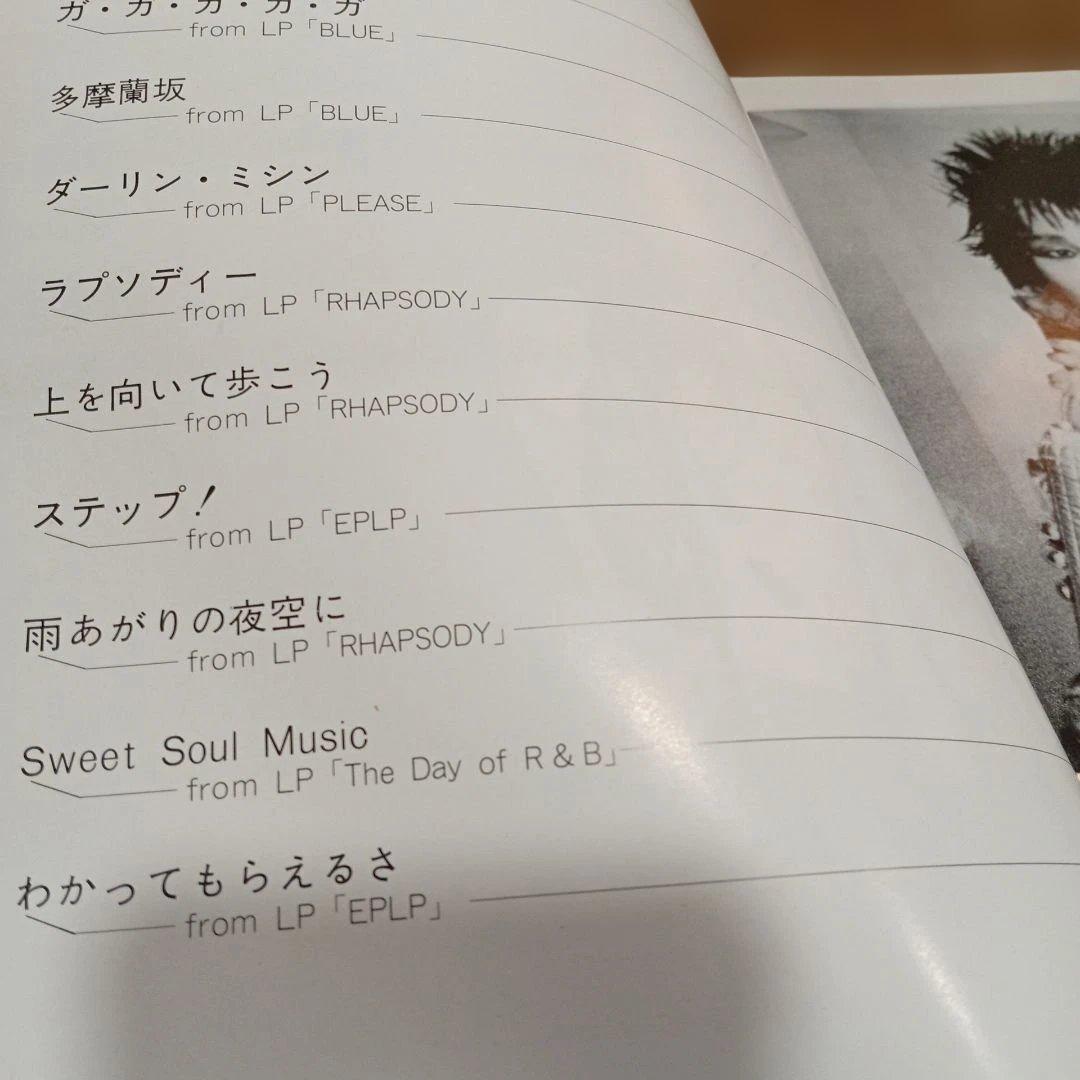 ガ・ガ・ガ・ガ・ガ
from LP「BLUE」
多摩蘭坂
from LP「BLUE」
ダーリン・ミシン
from LP「PLEASE」
ラプソディー
from LP「RHAPSODY」
上を向いて歩こう
from LP「RHAPSODY」
ステップ!
from LP「EPLP」
雨あがりの夜空に
from LP「RHAPSODY」
Sweet Soul Music
from LP「The Day of R&B」
わかってもらえるさ
from LP「EPLP」